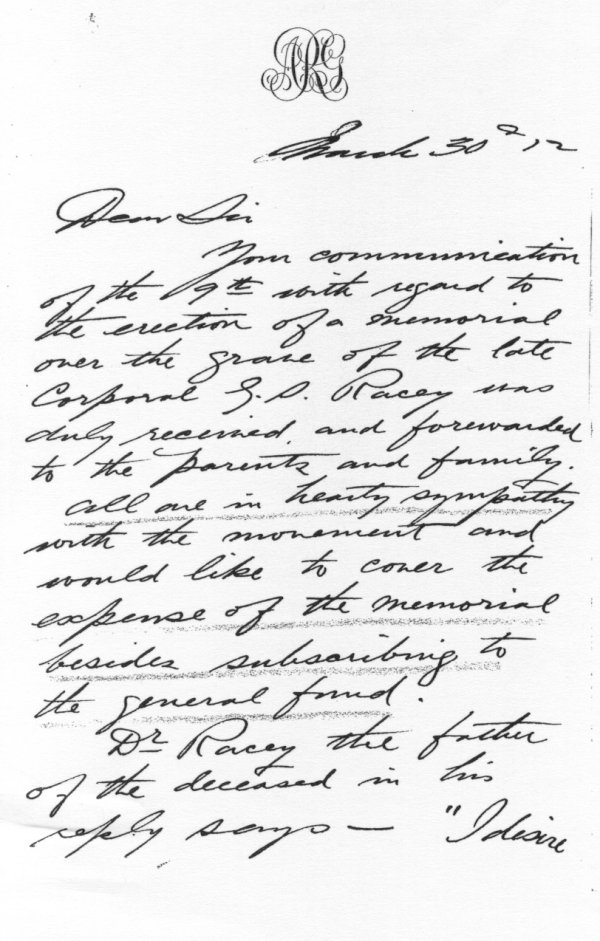 ARG
March 30th '12
Dear Sir
Your communication
of the 9th with regard to
the erection of a memorial
over the grave of the late
Corporal G. S. Racey was
duly received, and forewarded
to the parents and family.
All are in hearty sympathy
with the movement and
would like to cover the
expense of the memorial
besides subscribing to
the general fund.
Dr Racey the father
of the deceased in his
reply says — "I desire